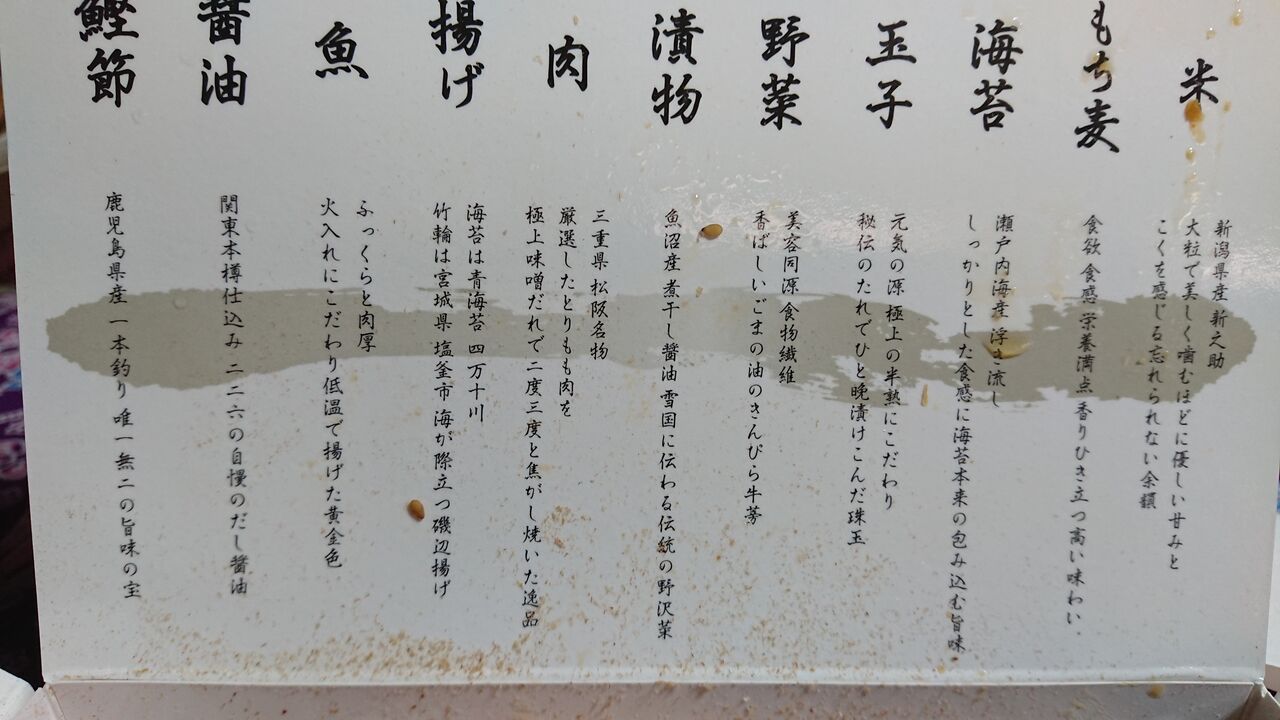 米
新潟県産 新之助
大粒で美しく噛むほどに優しい甘みと
こくを感じる忘れられない余韻
もち麦
食欲 食感 栄養満点 香りひき立つ高い味わい
海苔
瀬戸内海産 浮き流し
しっかりとした食感に海苔本来の包み込む旨味
玉子
元気の源 極上の半熟にこだわり
秘伝のたれでひと晩漬けこんだ珠玉
野菜
美容同源 食物繊維
香ばしいごまの油のきんぴら牛蒡
漬物
魚沼産 煮干し醤油 雪国に伝わる伝統の野沢菜
肉
三重県 松阪名物
厳選したとりもも肉を
極上味噌だれで二度三度と焦がし焼いた逸品
揚げ
海苔は青海苔 四万十川
竹輪は宮城県 塩釜市 海が際立つ磯辺揚げ
魚
ふっくらと肉厚
火入れにこだわり低温で揚げた黄金色
醤油
関東本樽仕込み 二二六の自慢のだし醤油
鰹節
鹿児島県産 一本釣り 唯一無二の旨味の宝